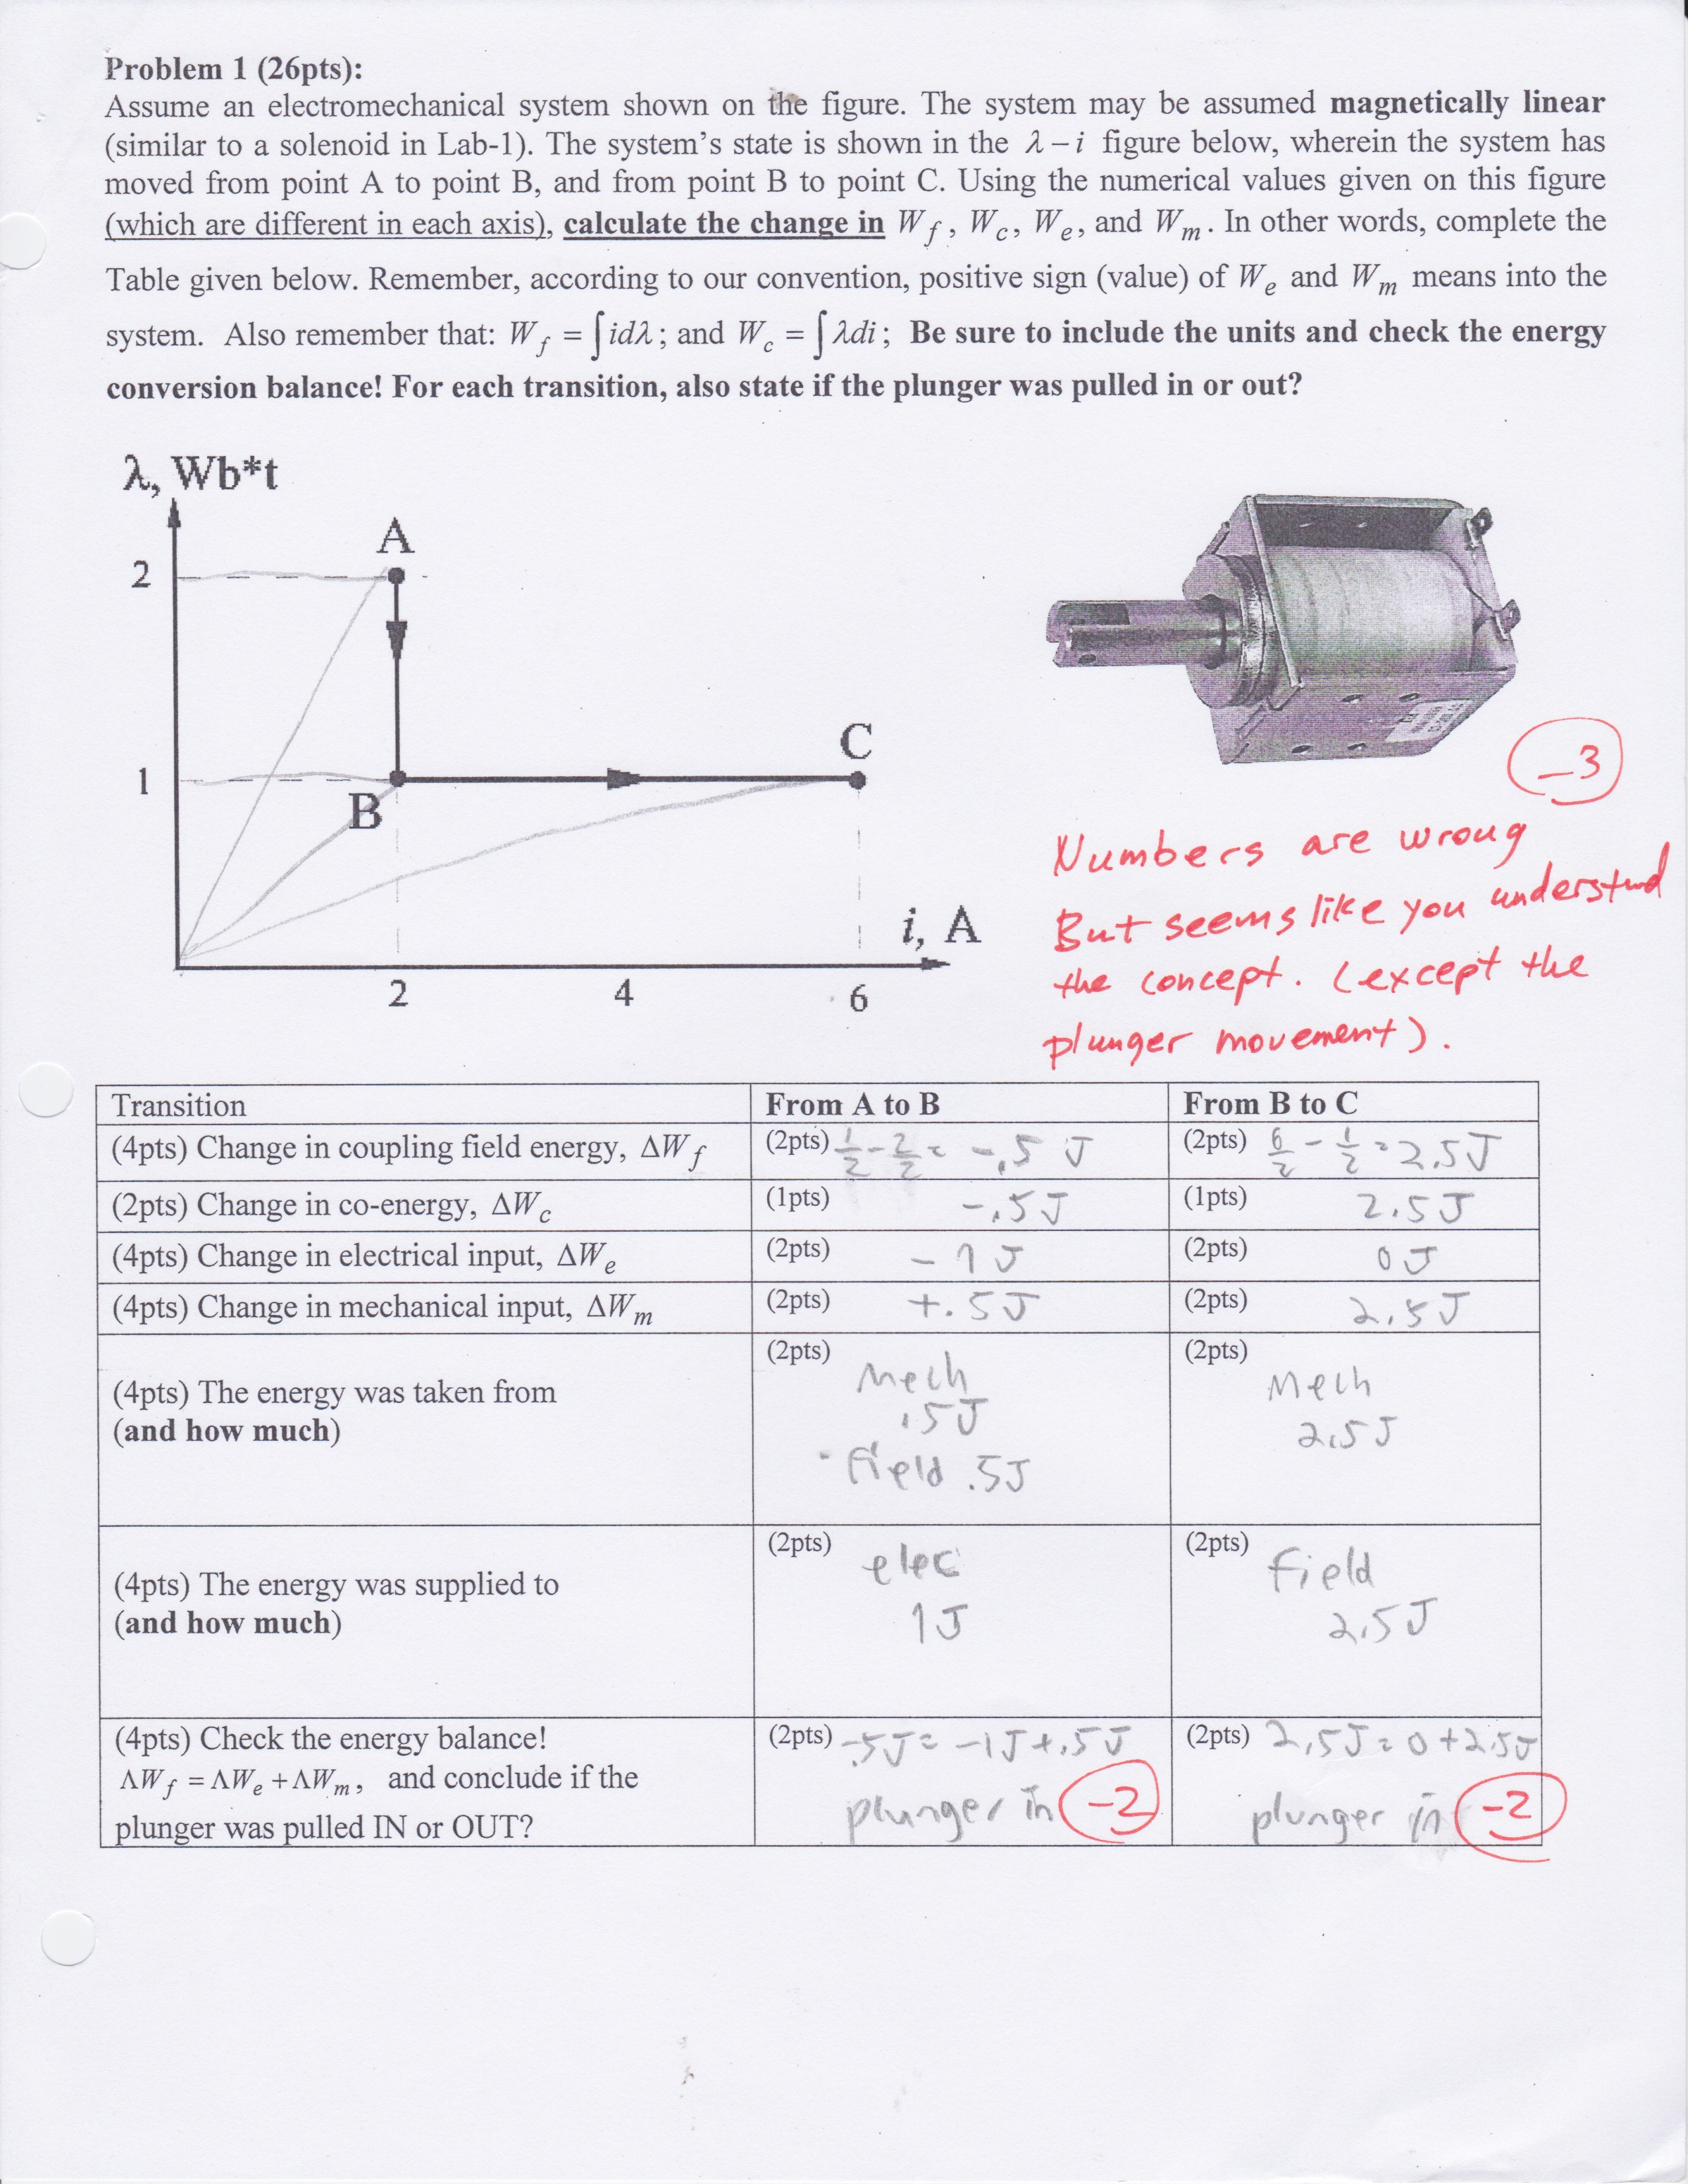 Problem 1 (26pts):
Assume an electromechanical system shown on the figure. The system may be assumed magnetically linear
(similar to a solenoid in Lab-1). The system's state is shown in the λ − i figure below, wherein the system has
moved from point A to point B, and from point B to point C. Using the numerical values given on this figure
(which are different in each axis), calculate the change in W_f, W_c, W_e, and W_m. In other words, complete the
Table given below. Remember, according to our convention, positive sign (value) of W_e and W_m means into the
system. Also remember that: W_f = ∫idλ; and W_c = ∫λdi; Be sure to include the units and check the energy
conversion balance! For each transition, also state if the plunger was pulled in or out?
λ, Wb*t
A
2
C
1
B
i, A
2 4 6
-3
Numbers are wroug
But seems like you understund
the concept. (except the
plunger movement).
Transition From A to B From B to C
(4pts) Change in coupling field energy, ΔW_f (2pts) 1/2 - 2/2 = -.5 J (2pts) 6/2 - 1/2 = 2.5J
(2pts) Change in co-energy, ΔW_c (1pts) -.5J (1pts) 2.5J
(4pts) Change in electrical input, ΔW_e (2pts) -1J (2pts) 0J
(4pts) Change in mechanical input, ΔW_m (2pts) +.5J (2pts) 2.5J
(4pts) The energy was taken from
(and how much)
(2pts)
Mech
.5J
Field .5J
(2pts)
Mech
2.5J
(4pts) The energy was supplied to
(and how much)
(2pts)
elec
1J
(2pts)
field
2.5J
(4pts) Check the energy balance!
ΛW_f = ΛW_e + ΛW_m, and conclude if the
plunger was pulled IN or OUT?
(2pts) -.5J = -1J+.5J
plunger in -2
(2pts) 2.5J = 0+2.5J
plunger in -2